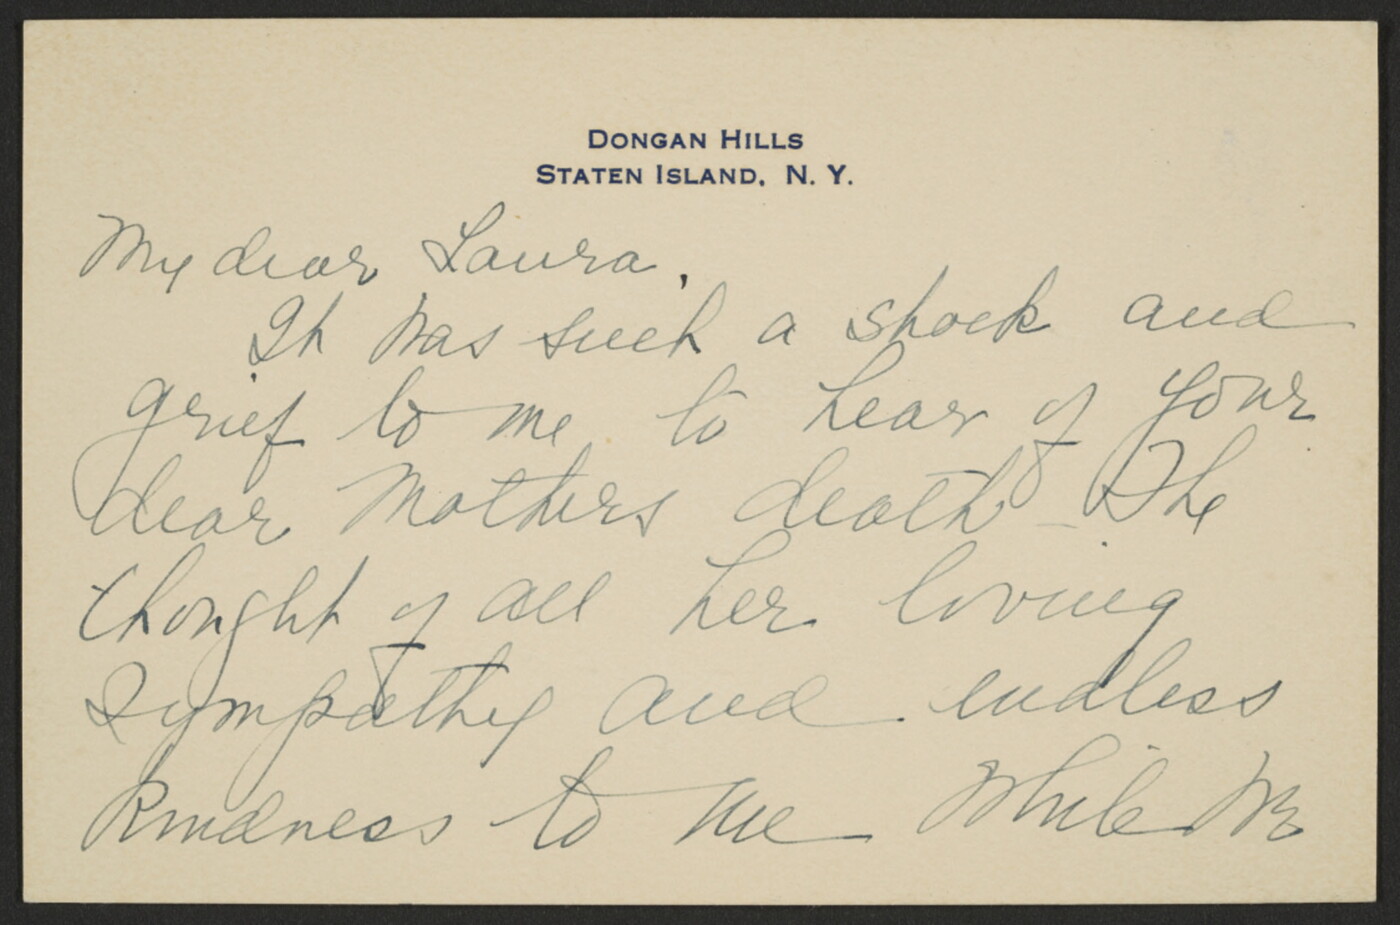 DONGAN HILLS
STATEN ISLAND, N. Y.
My dear Laura,
It was such a shock and
grief to me to hear of your
dear Mothers death – The
thought of all her loving
sympathy and endless
kindness to me while we